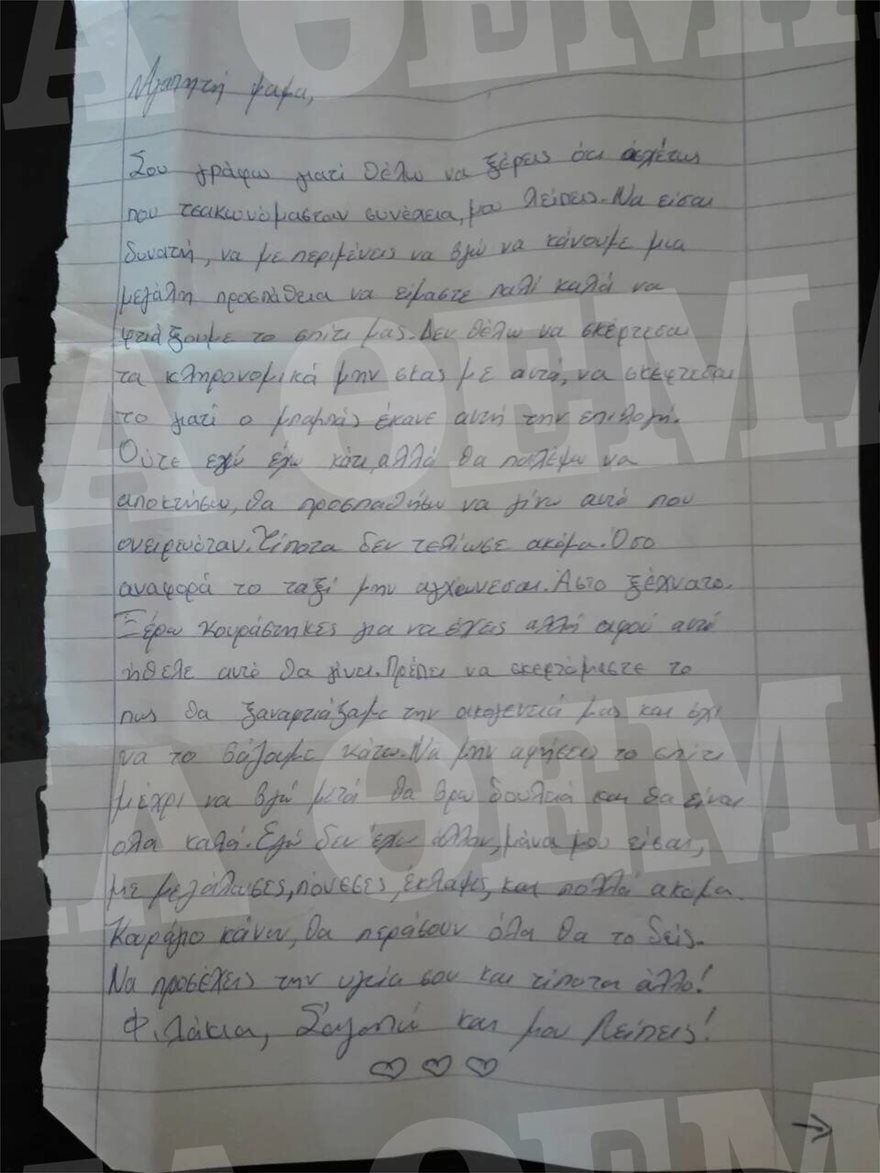 Αγαπητή μαμα,
Σου γράφω γιατί θέλω να ξέρεις ότι ασχέτως
που τσακωνόμασταν συνέχεια, μου λείπεις. Να είσαι
δυνατή, να με περιμένεις να βγώ να κάνουμε μια
μεγάλη προσπάθεια να είμαστε παλί καλά να
φτιάξουμε το σπίτι μας. Δεν θέλω να σκέφτεσαι
τα κληρονομικά μην σκας με αυτά, να σκέφτεσαι
το γιατί ο μπαμπάς έκανε αυτή την επιλογή.
Ούτε εγώ έχω κάτι αλλά θα παλέψω να
αποκτήσω, θα προσπαθήσω να γίνω αυτό που
ονειρωόταν. Τίποτα δεν τελίωσε ακόμα. Όσο
αναφορά το ταξί μην αγχώνεσαι. Άστο ξέχνατο.
Ξέρω κουράστηκες για να έχεις αλλά αφού αυτό
ήθελε αυτό θα γίνει. Πρέπει να σκεφτόμαστε το
πως θα ξαναφτιάξαμε την οικογένειά μας και όχι
να το βάλουμε κάτω. Να μην αφήσεις το σπίτι
μέχρι να βγώ μετά θα βρω δουλειά και θα είναι
ολα καλά. Εγώ δεν έχω άλλον, μάνα μου είσαι,
με μεγάλωσες, πόνεσες, έκλαψες, και πολλά ακόμα.
Κουράγιο κάνω, θα περάσουν όλα θα το δείς.
Να προσέχεις την υγεία σου και τίποτα άλλο!
Φιλάκια, Σ'αγαπώ και μου λείπεις!
ΘΕΜΑ
ΘΕΜΑ
ΘΕΜΑ
ΘΕΜΑ